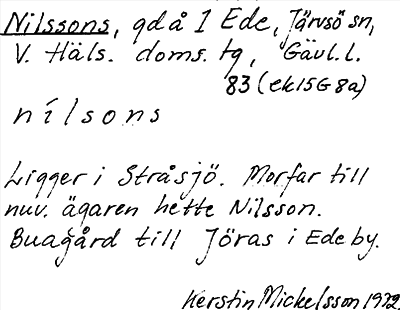 Nilssons, gdå 1 Ede, Järvsö sn,
V. Häls. doms. tg, Gävl. l.
83 (ek 15G 8a)
nílsons
Ligger i Stråsjö. Morfar till
nuv. ägaren hette Nilsson.
Buagård till Jöras i Ede by.
Kerstin Mickelsson 1972.